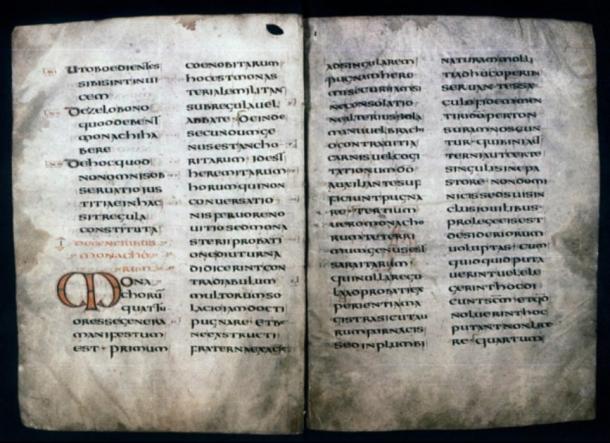 UTOBOEDIENTES
SIBISINTINUI
CEM
DEZELOBONO
QUODDEBENT
MONACHIHA
BERE
DEHOCQUOD
NONOMNISOB
SERUATIOIUS
TITIAEINHAC
SITREGULA
CONSTITUTA
I DEGENERIBUS
MONACHO
RUM
MONA
CHORU
QUATTU
ORESSEGENERA
MANIFESTUM
EST · PRIMUM
COENOBITARUM
HOCESTMONAS
TERIALEMILITAN
SUBREGULAUEL
ABBATE · DEINDE
SECUNDUMGE
NUSESTANCHO
RITARUM · IDEST
HEREMITARUM
HORUMQUINON
CONUERSATIO
NISFERUORENO
UITIOSEDMONA
STERIIPROBATI
ONEDIUTURNA
DIDICERINTCON
TRADIABULUM
MULTORUMSO
LACIOIAMDOCTI
PUGNARE · ETBE
NEEXSTRUCTI
FRATERNAEXACIE
ADSINGULAREM
PUGNAMHERE
MISECURIIAMSI
NECONSOLATIO
NEALTERIUSSOLA
MANUUELBRACHI
OCONTRAUITIA
CARNISUELCOGI
TATIONUMDO
AUXILIANTESUF
FICIUNTPUGNA
RE · TERTIUM
UEROMONACHO
RUMTAETERRI
MUMGENUSEST
SARAITARUM
QUINULLAREGU
LAADPROBATIEX
PERIENTIAMA
GISTRASICUTAU
RUMFORNACIS
SEDINPLUMBI
NATURAMOLLI
TIADHUCOPERIB
SERUANTESSAE
CULOFIDEMMEN
TIRIDOPERTON
SURAMNOSCUN
TUR · QUIBINIAUT
TERNIAUTCERTE
SINGULISINEPA
STORE · NONDOMI
NICISSEDSUISIN
CLUSIOUILIBUS
PROLEGEEISEST
DESIDERIORUM
UOLUPTAS · CUM
QUIDQUIDPUTA
UERINTUELELE
GERINTHOCDI
CUNTSCMETQD
NOLUERINTHOC
PUTANTNONLICE
RE · QUARTUM